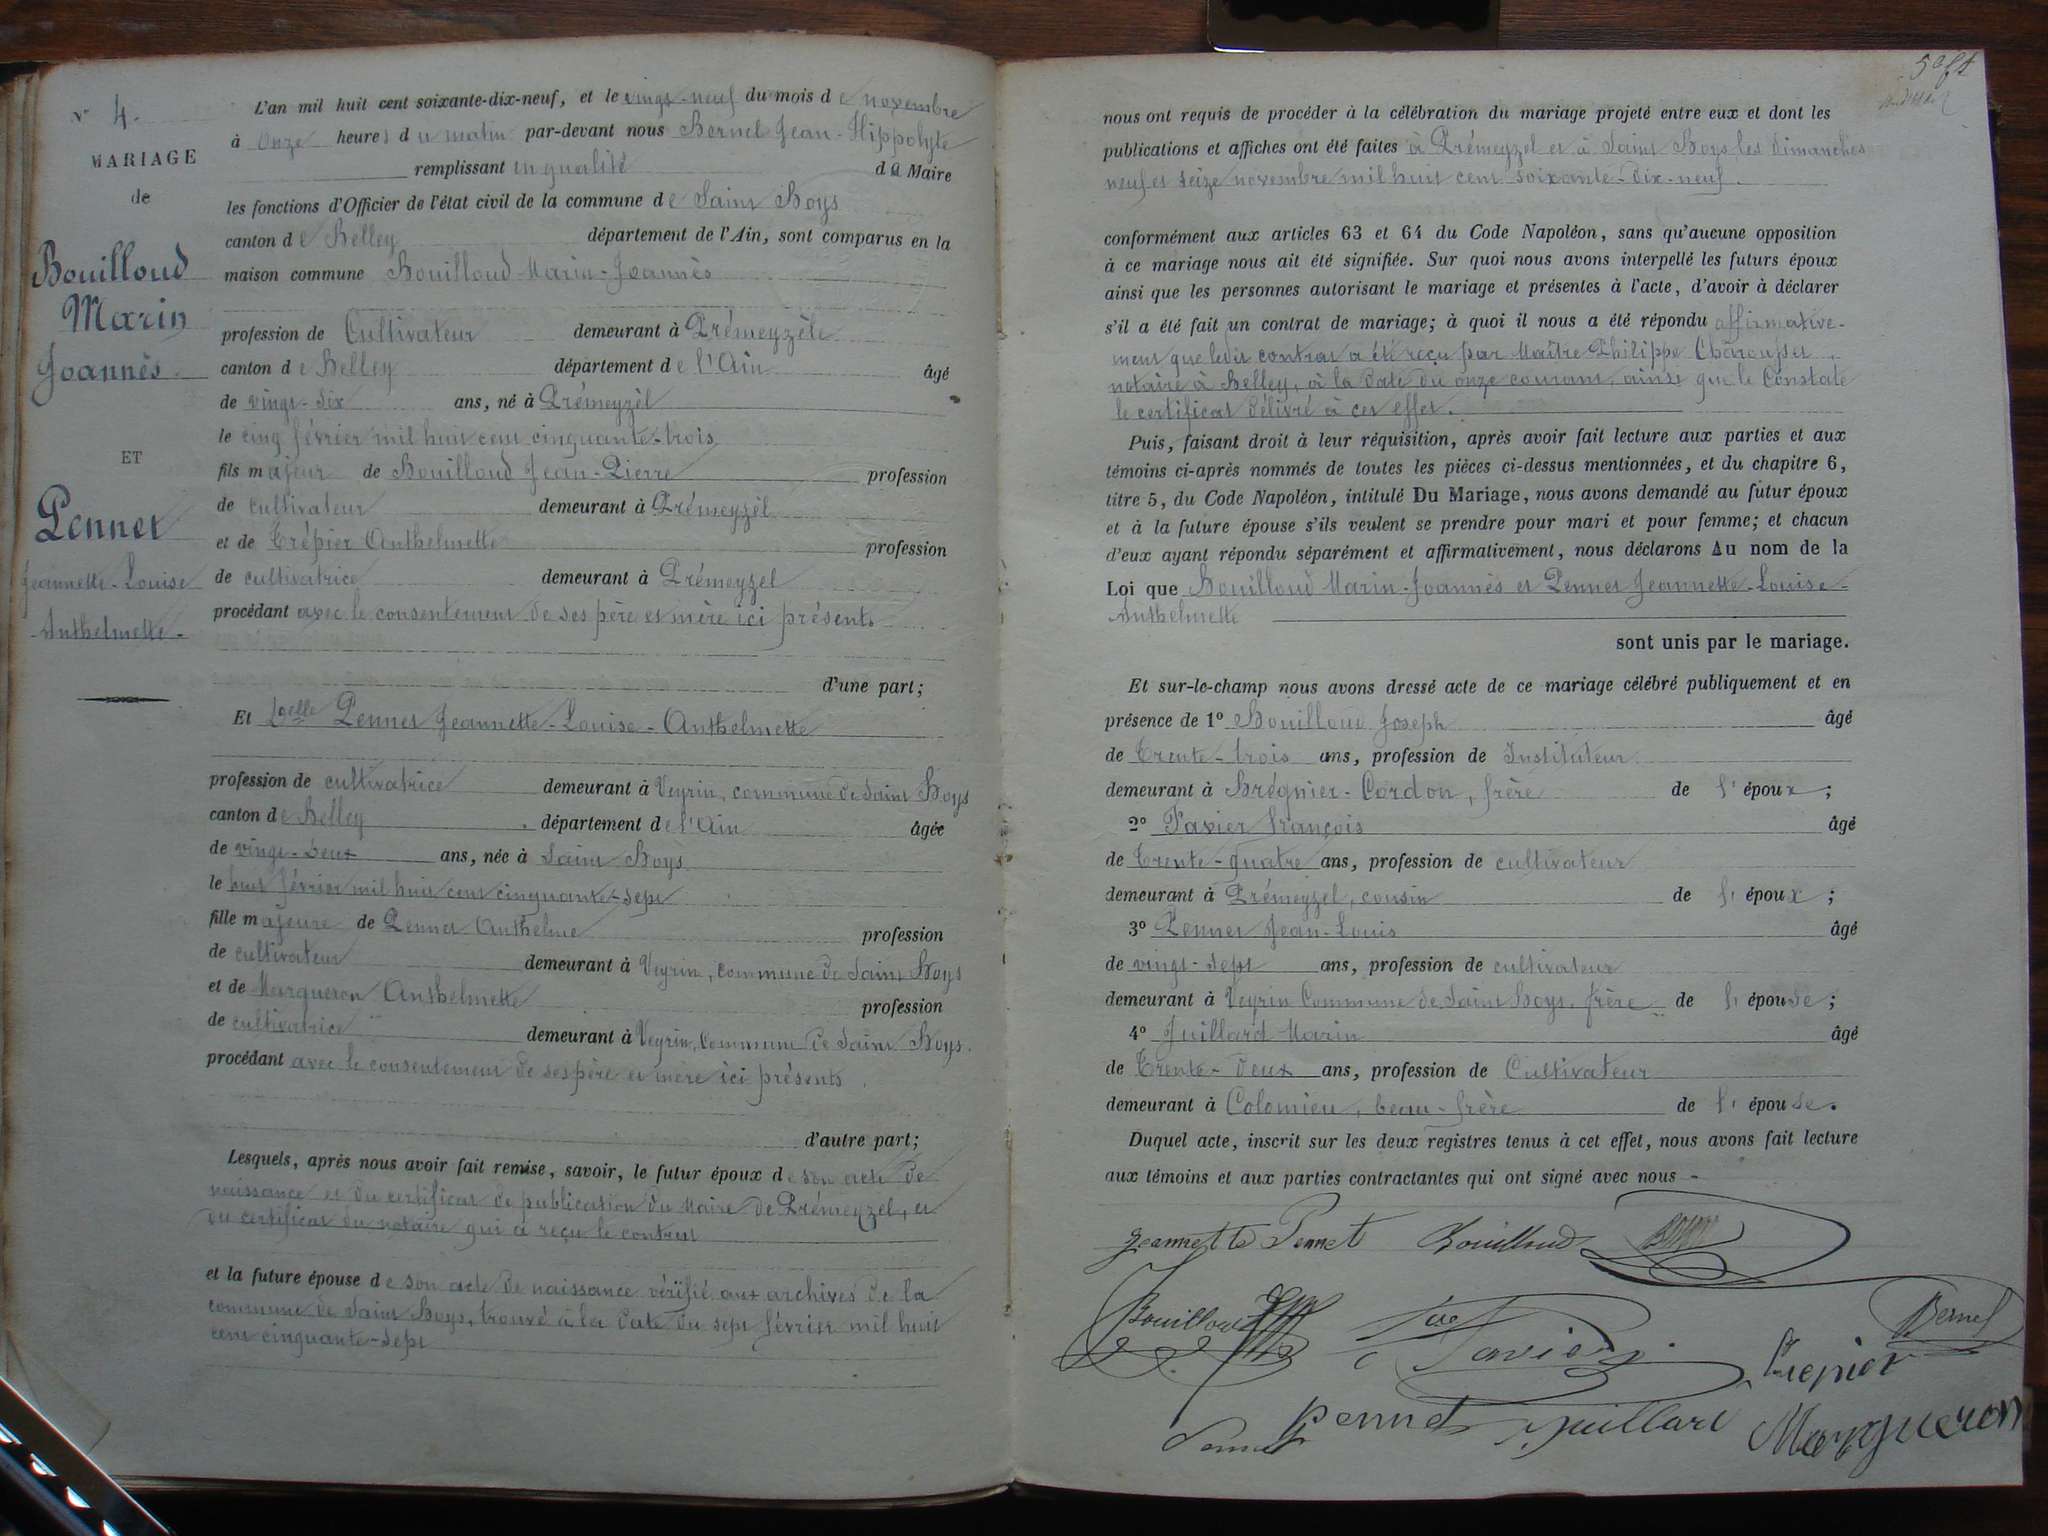 N° 4.
MARIAGE
de
Bouilloud
Marin
Joannès.
ET
Pennet
Jeannette-Louise
Anthelmette.
L'an mil huit cent soixante-dix-neuf, et le vingt-neuf du mois de novembre
à onze heures du matin par-devant nous Bernel Jean-Hippolyte
remplissant en qualité de Maire
les fonctions d'Officier de l'état civil de la commune de Saint Boys
canton de Belley département de l'Ain, sont comparus en la
maison commune Bouilloud Marin-Joannès
profession de Cultivateur demeurant à Prémeyzèle
canton de Belley département de l'Ain âgé
de vingt-six ans, né à Prémeyzèl
le cinq février mil huit cent cinquante-trois
fils majeur de Bouilloud Jean-Pierre profession
de cultivateur demeurant à Prémeyzèl
et de Trépier Anthelmette profession
de cultivatrice demeurant à Prémeyzel
procédant avec le consentement de ses père et mère ici présents
d'une part;
Et Delle Pennet Jeannette-Louise-Anthelmette
profession de cultivatrice demeurant à Veyrin, commune de Saint Boys
canton de Belley département de l'Ain âgée
de vingt-deux ans, née à Saint Boys
le huit février mil huit cent cinquante-sept
fille majeure de Pennet Anthelme profession
de cultivateur demeurant à Veyrin, commune de Saint Boys
et de Margueron Anthelmette profession
de cultivatrice demeurant à Veyrin, commune de Saint Boys.
procédant avec le consentement de ses père et mère ici présents
d'autre part;
Lesquels, après nous avoir fait remise, savoir, le futur époux de son acte de
naissance et du certificat de publication du Maire de Prémeyzel, et
du certificat du notaire qui a reçu le contrat
et la future épouse de son acte de naissance vérifié aux archives de la
commune de Saint Boys, trouvé à la date du sept février mil huit
cent cinquante-sept
nous ont requis de procéder à la célébration du mariage projeté entre eux et dont les
publications et affiches ont été faites à Prémeyzel et à Saint Boys les dimanches
neuf et seize novembre mil huit cent soixante-dix-neuf.
conformément aux articles 63 et 64 du Code Napoléon, sans qu'aucune opposition
à ce mariage nous ait été signifiée. Sur quoi nous avons interpellé les futurs époux
ainsi que les personnes autorisant le mariage et présentes à l'acte, d'avoir à déclarer
s'il a été fait un contrat de mariage; à quoi il nous a été répondu affirmative-
ment que ledit contrat a été reçu par Maître Philippe
notaire à Belley, à la date du onze courant, ainsi que le constate
le certificat délivré à cet effet.
Puis, faisant droit à leur réquisition, après avoir fait lecture aux parties et aux
témoins ci-après nommés de toutes les pièces ci-dessus mentionnées, et du chapitre 6,
titre 5, du Code Napoléon, intitulé Du Mariage, nous avons demandé au futur époux
et à la future épouse s'ils veulent se prendre pour mari et pour femme; et chacun
d'eux ayant répondu séparément et affirmativement, nous déclarons Au nom de la
Loi que Bouilloud Marin-Joannès et Pennet Jeannette-Louise-
Anthelmette
sont unis par le mariage.
Et sur-le-champ nous avons dressé acte de ce mariage célébré publiquement et en
présence de 1° Bouilloud Joseph âgé
de Trente-trois ans, profession de Instituteur
demeurant à Brégnier-Cordon, frère de l'époux;
2° Tavier françois âgé
de Trente-quatre ans, profession de cultivateur
demeurant à Prémeyzel, cousin de l'époux;
3° Pennet Jean-Louis âgé
de vingt-sept ans, profession de cultivateur
demeurant à Veyrin Commune de Saint Boys, frère de l'épouse;
4° Juillard Marin âgé
de Trente-deux ans, profession de Cultivateur
demeurant à Colomieu, beau-frère de l'épouse.
Duquel acte, inscrit sur les deux registres tenus à cet effet, nous avons fait lecture
aux témoins et aux parties contractantes qui ont signé avec nous -
Jeannette Pennet Bouilloud
Bouilloud Tavier Bernel
Trepier
Pennet Pennet Juillard Margueron